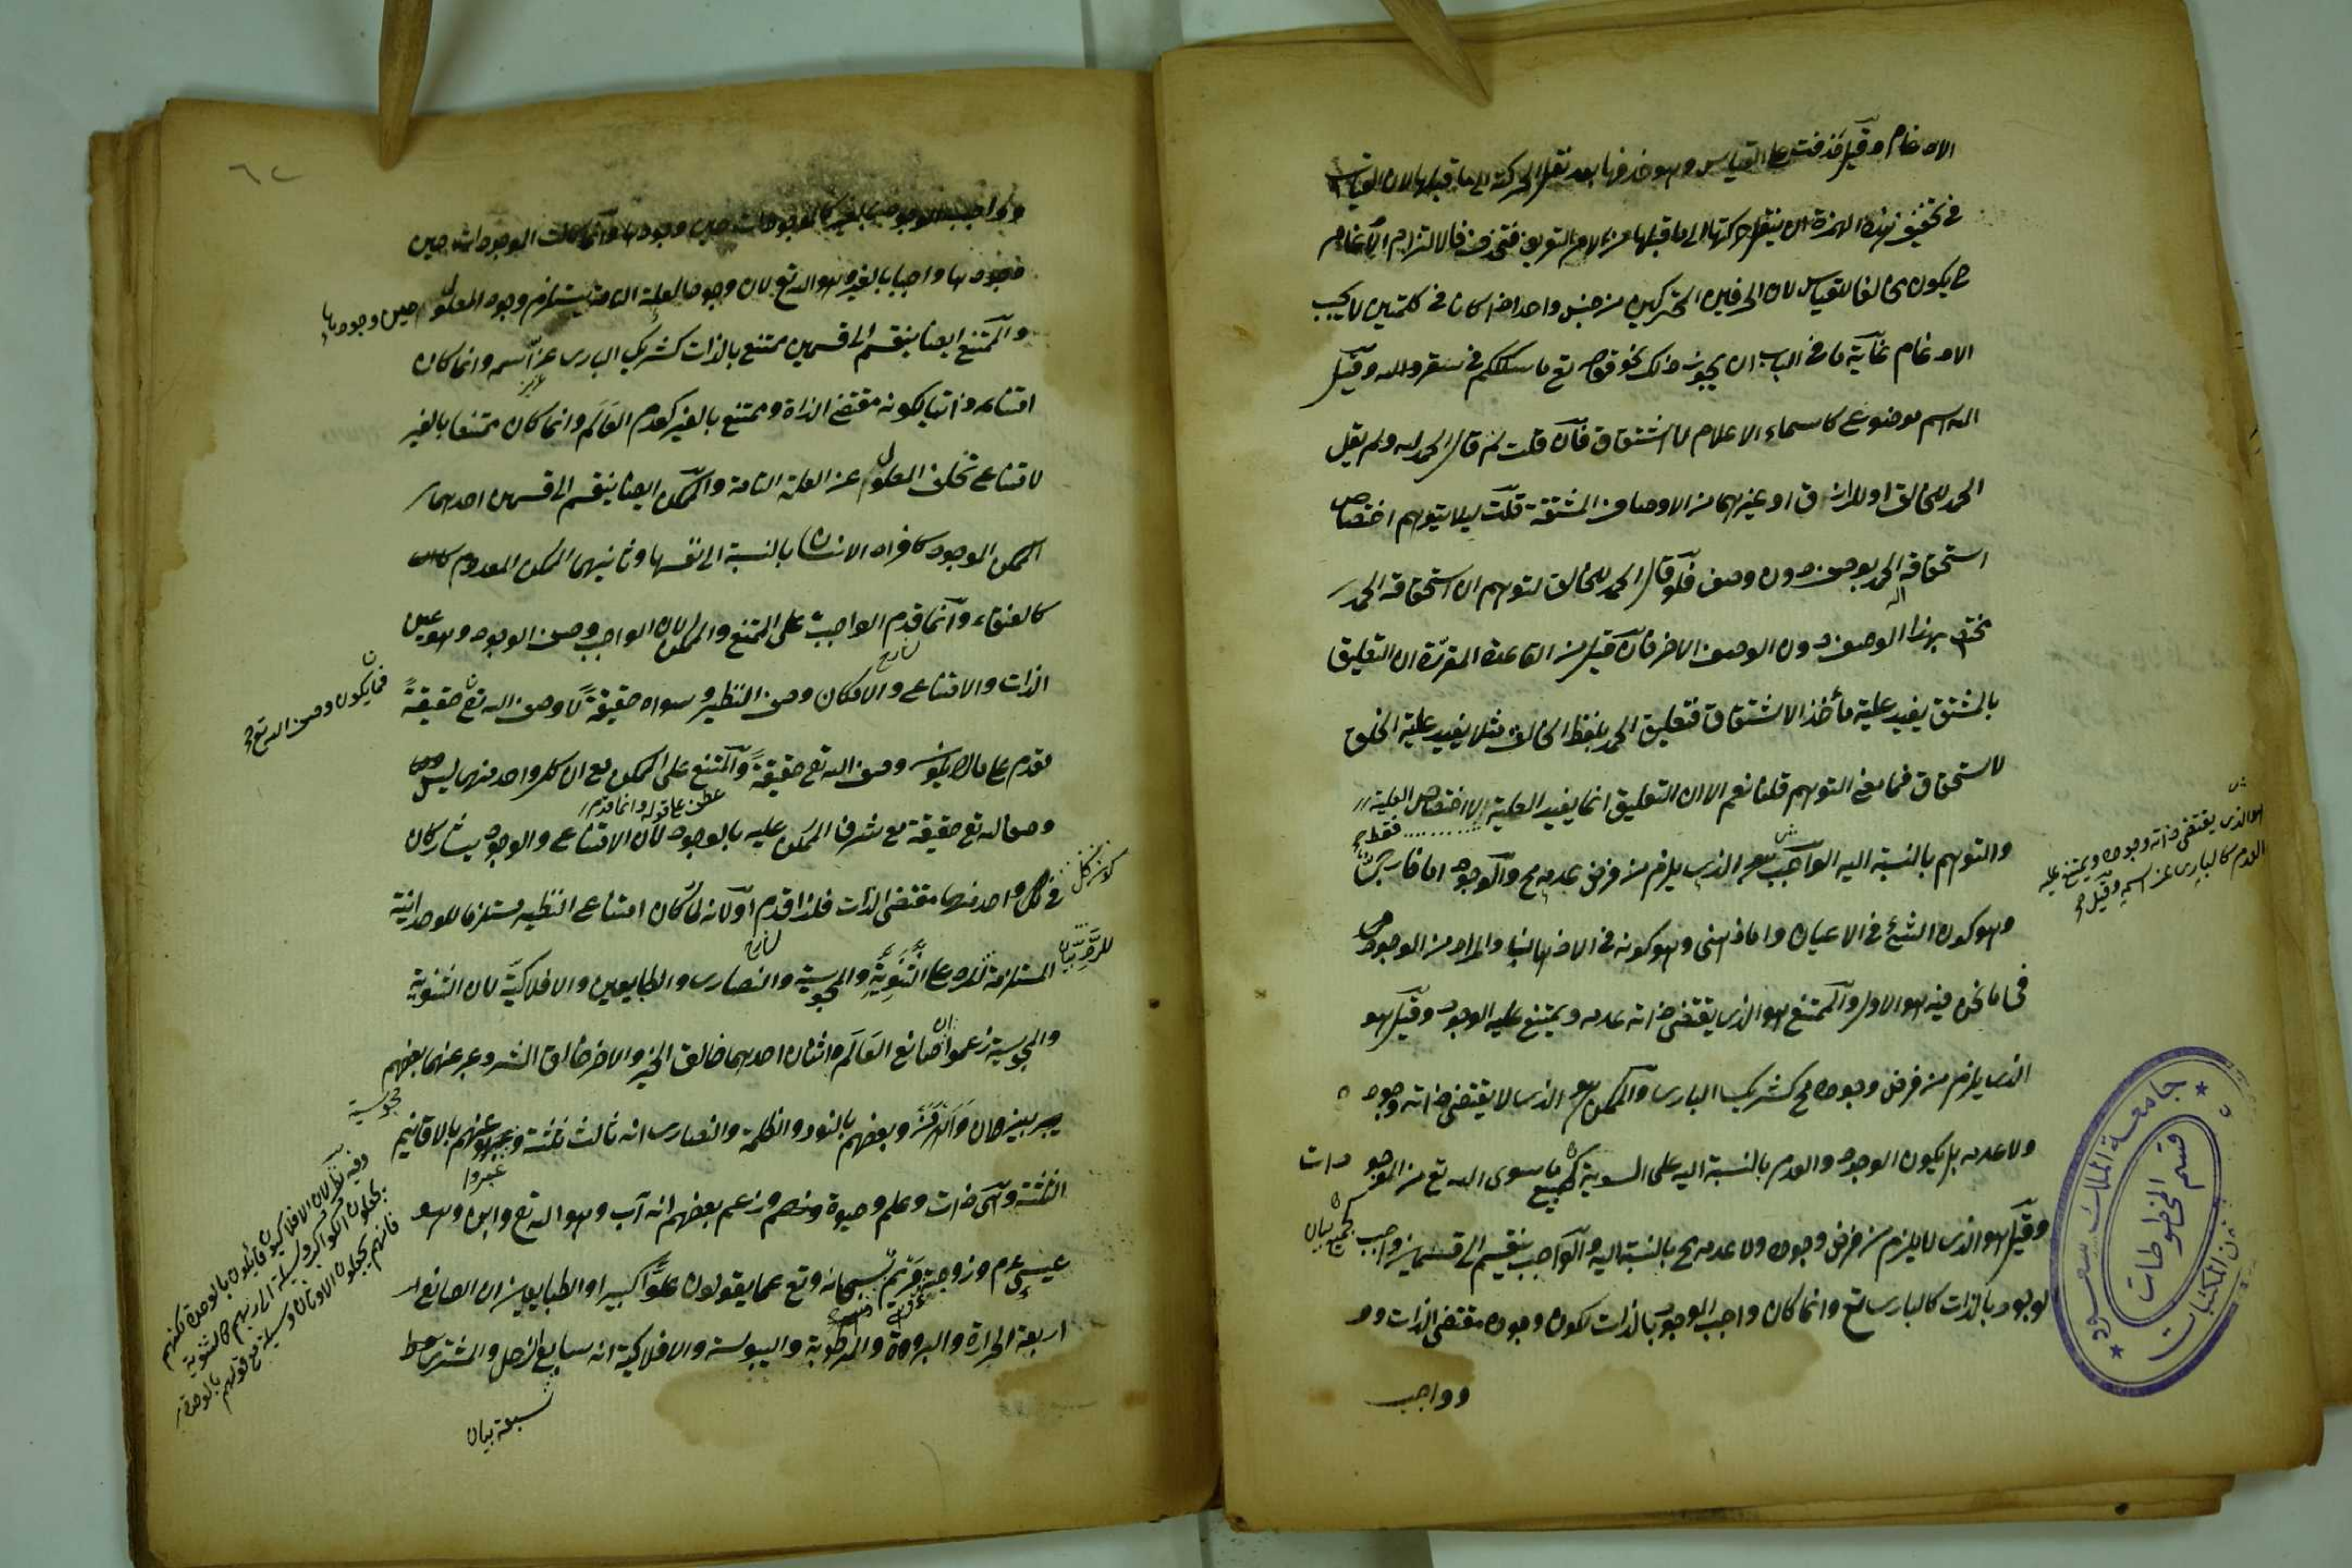 الادغام وقيل حذفت على القياس وهو حذفها بعد نقل الحركة الى ما قبلها لان القياس
في تخفيف هذه الهمزة ان ينقل حركتها الى ما قبلها من لام التعريف فتحذف فالالتزام الادغام
ح يكون مخالفا للقياس لان الحرفين المتحركين من جنس واحد اذا كانا في كلمتين لا يجب
الادغام غاية ما في الباب ان يجوز ذلك نحو قوله تع ما سلككم في سقر والله وقيل
الله اسم موضوع كاسماء الاعلام لا اشتقاق فان قلت لم قال الحمد لله ولم يقل
الحمد للخالق او للرازق او غيرهما من الاوصاف المشتقة قلت ليلا يتوهم اختصاص
استحقاقه الحمد بوصف دون وصف فلو قال الحمد للخالق لتوهم ان استحقاقه الحمد
مختص بهذا الوصف دون الوصف الاخر فان قيل من القاعدة المقررة ان التعليق
بالمشتق يفيد علية مأخذ الاشتقاق فتعليق الحمد بلفظ الخالق مثلا يفيد علية الخلق
لاستحقاق فما معنى التوهم قلنا نعم الا ان التعليق انما يفيد العلية لا اختصاص العلية
فقط
والتوهم بالنسبة اليه الواجب هو الذي يلزم من فرض عدمه مح والوجود اما خارجي
وهو كون الشئ في الاعيان واما ذهني وهو كونه في الاذهان والمراد من الوجود
في ما نحن فيه هو الاول والممتنع هو الذي يقتضي ذاته عدمه ويمتنع عليه الوجود وقيل هو
الذي يلزم من فرض وجوده مح كشريك الباري والممكن هو الذي لا يقتضي ذاته وجوده
ولا عدمه بل يكون الوجود والعدم بالنسبة اليه على السوية كجميع ما سوى الله تع من الموجودات
وقيل هو الذي لا يلزم من فرض وجوده ولا عدمه مح بالنسبة اليه والواجب ينقسم الى قسمين واجب
الوجود بالذات كالباري تع وانما كان واجب الوجود بالذات لكون وجوده مقتضى الذات و
وواجب
هو الذي يقتضي ذاته وجوده ويمتنع عليه
العدم كالباري عز اسمه وقيل
كجميع بيان
جامعة الملك سعود
قسم المخطوطات
شئون المكتبات
وواجب الوجود بالغير كالموجودات حين وجودها وانما كانت الموجودات حين
وجودها واجبا بالغير وهو الله تع لان وجود العلة التامة يستلزم وجود المعلول حين وجودها
والممتنع ايضا ينقسم الى قسمين ممتنع بالذات كشريك الباري عز اسمه وانما كان
امتناعه ذاتيا لكونه مقتضى الذات وممتنع بالغير كعدم العالم وانما كان ممتنعا بالغير
لامتناع تخلف المعلول عن العلة التامة والممكن ايضا ينقسم الى قسمين احدهما
الممكن الموجود كافراد الانسان بالنسبة الى نفسها وثانيهما الممكن المعدوم
كالعنقاء وانما قدم الواجب على الممتنع والممكن لان الواجب وصف الوجود وهو عين
الذات والامتناع والامكان وصف النظير وسواه حقيقة لا وصف الله تع حقيقة
فما يكون وصف الله تع
يقدم على ما لا يكون وصف الله تع حقيقة والممتنع على الممكن مع ان كل واحد منهما ليس
عطف على قوله وانما قدم
وصف الله تع حقيقة مع شرف الممكن عليه بالوجود لان الامتناع والوجود يشاركان
في كل واحد منهما مقتضى الذات فلذا قدم اولانه لما كان امتناع النظير مستلزما للوحدانية
المستلزمة للرد على الثنوية والمجوسية والنصارى والطبايعين والافلاكية لان الثنوية
والمجوسية زعموا ان صانع العالم اثنان احدهما خالق الخير والاخر خالق الشر وعبر عنهما بعضهم
مجوسية
بيزدان واهرمن وبعضهم بالنور والظلمة والنصارى انه ثالث ثلثة وعبروا عنهم بالاقانيم
الثلثة وهي ذات وعلم وحيوة ومنهم وزعم بعضهم انه آب وهو الله تع وابن وهو
عيسى ع م وزوجة مريم سبحانه وتع عما يقولون علوا كبيرا والطبايعين ان الصانع
اربعة الحرارة والبرودة والرطوبة واليبوسة والافلاكية انه سبايع الزحل والمشتري
سبعة بيان
وفيه نظر لان الافلاكيون قائلون بالوحدة لكنهم
يجعلون الكواكب وسيلة الى ربهم كالثنوية
فانهم يجعلون الاوثان وسيلة مع قولهم بالوحدة